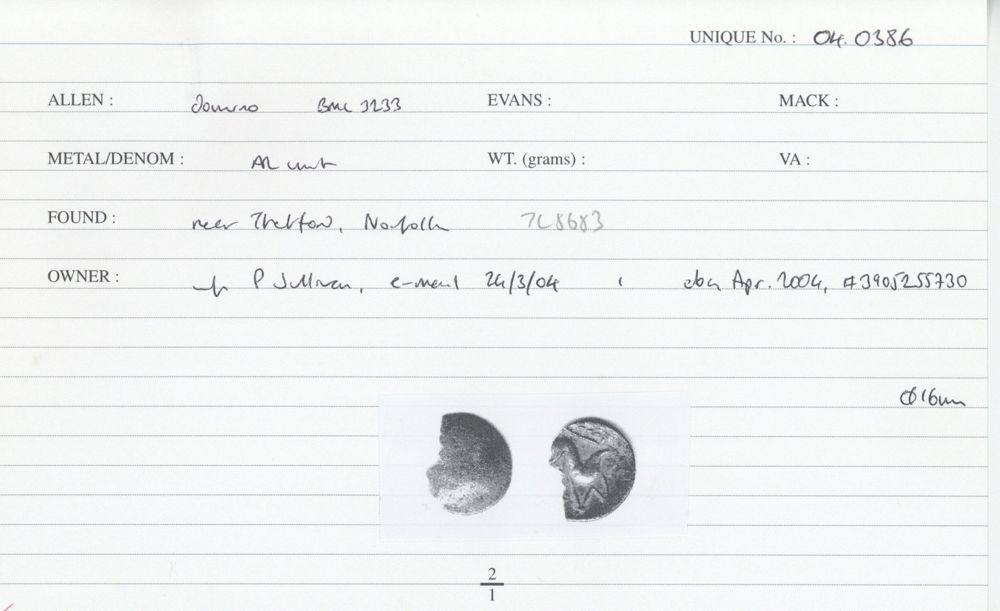 UNIQUE No. : 04.0386
ALLEN : domino BMC 3233 EVANS : MACK :
METAL/DENOM : AR unit WT. (grams) : VA :
FOUND : near Thetford, Norfolk TL8683
OWNER : P Sullivan, e-mail 24/3/04 ; ebay Apr. 2004, #3905255730
Ø 16mm
2
1